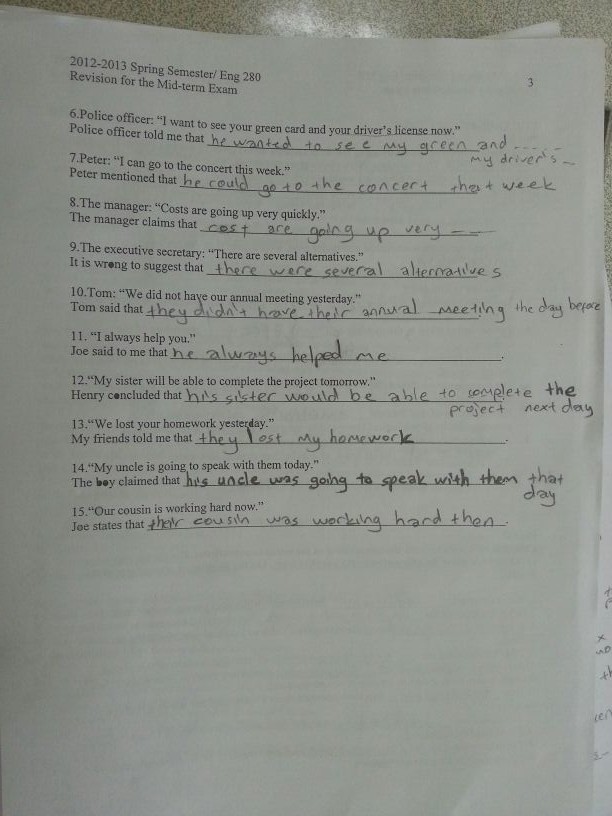 2012-2013 Spring Semester/ Eng 280
Revision for the Mid-term Exam
3
6.Police officer: “I want to see your green card and your driver’s license now.”
Police officer told me that he wanted to see my green and ......
my driver's –
7.Peter: “I can go to the concert this week.”
Peter mentioned that he could go to the concert that week
8.The manager: “Costs are going up very quickly.”
The manager claims that cost are going up very – –
9.The executive secretary: “There are several alternatives.”
It is wrong to suggest that there were several alternatives
10.Tom: “We did not have our annual meeting yesterday.”
Tom said that they didn't have their annual meeting the day before
11. “I always help you.”
Joe said to me that he always helped me.
12.“My sister will be able to complete the project tomorrow.”
Henry concluded that his sister would be able to complete the
project next day
13.“We lost your homework yesterday.”
My friends told me that they lost my homework.
14.“My uncle is going to speak with them today.”
The boy claimed that his uncle was going to speak with them that
day
15.“Our cousin is working hard now.”
Joe states that their cousin was working hard then.